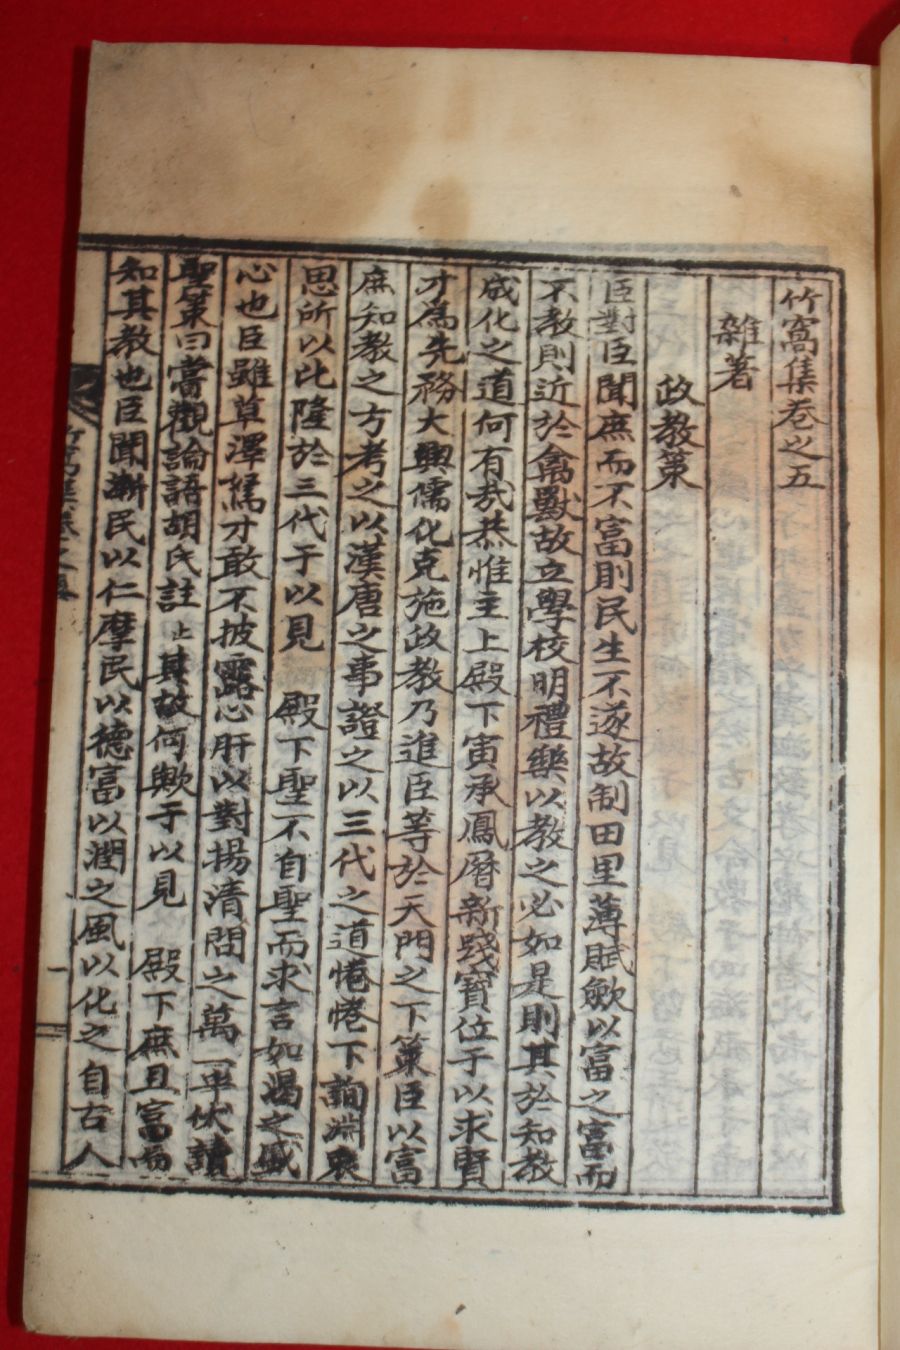 竹窩集卷之五
雜著
政教策
臣對臣聞庶而不富則民生不遂故制田里薄賦斂以富之富而
不教則近於禽獸故立學校明禮樂以教之必如是則其於知教
咸化之道何有哉恭惟主上殿下寅承鳳曆新踐寶位于以求賢
才爲先務大興儒化克施政教乃進臣等於天門之下策臣以富
庶知教之方考之以漢唐之事證之以三代之道惓惓下詢淵衷
思所以比隆於三代于以見 殿下聖不自聖而求言如渴之盛
心也臣雖草澤駑才敢不披露心肝以對揚清問之萬一乎伏讀
聖策曰嘗觀論語胡氏註止其故何歟于以見 殿下庶且富而
知其教也臣聞漸民以仁摩民以德富以潤之風以化之自古人
竹窩集卷之五
一